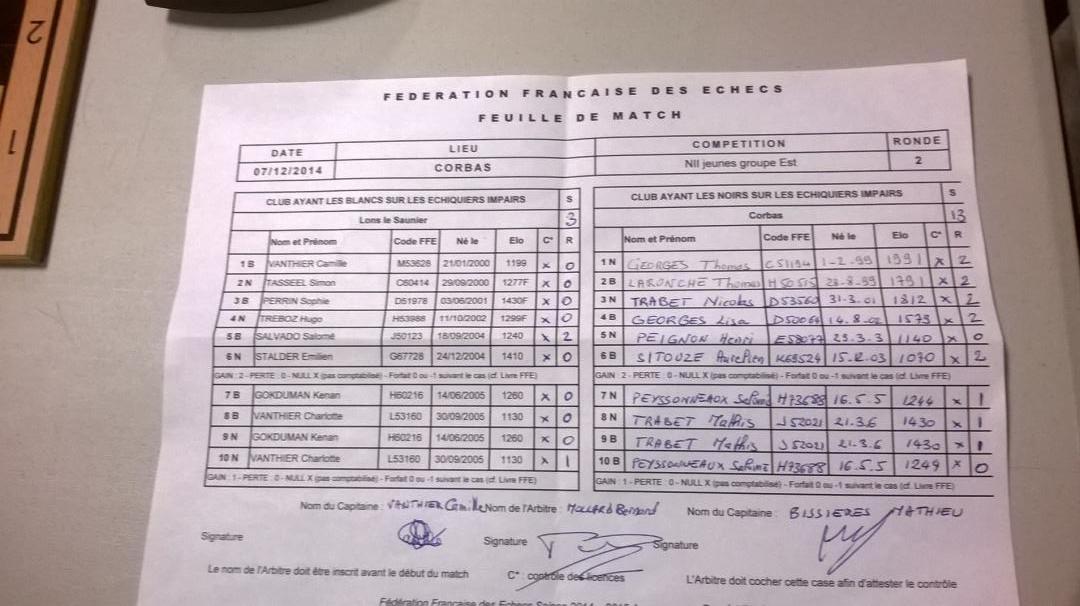 2
1
FEDERATION FRANCAISE DES ECHECS
FEUILLE DE MATCH
DATE LIEU COMPETITION RONDE
07/12/2014 CORBAS NII jeunes groupe Est 2
CLUB AYANT LES BLANCS SUR LES ECHIQUIERS IMPAIRS S CLUB AYANT LES NOIRS SUR LES ECHIQUIERS IMPAIRS S
Lons le Saunier 3 Corbas 13
Nom et Prénom Code FFE Né le Elo C* R Nom et Prénom Code FFE Né le Elo C* R
1 B VANTHIER Camille M53626 21/01/2000 1199 x 0 1 N GEORGES Thomas C51194 1-2-99 1991 x 2
2 N TASSEEL Simon C60414 29/09/2000 1277F x 0 2 B LARONCHE Thomas H50515 23-8-99 1791 x 2
3 B PERRIN Sophie D51978 03/06/2001 1430F x 0 3 N TRABET Nicolas D53560 31-3-01 1812 x 2
4 N TREBOZ Hugo H53988 11/10/2002 1299F x 0 4 B GEORGES Lisa D50064 14.8.02 1573 x 2
5 B SALVADO Salomé J50123 18/09/2004 1240 x 2 5 N PEIGNON Henri E58077 29.3.3 1140 x 0
6 N STALDER Emilien G67728 24/12/2004 1410 x 0 6 B SITOUZE Aurelien K69524 15.12.03 1070 x 2
GAIN : 2 - PERTE : 0 - NULL X (pas comptabilisé) - Forfait 0 ou -1 suivant le cas (cf. Livre FFE) GAIN : 2 - PERTE : 0 - NULL X (pas comptabilisé) - Forfait 0 ou -1 suivant le cas (cf. Livre FFE)
7 B GOKDUMAN Kenan H60216 14/06/2005 1260 x 0 7 N PEYSSONNEAUX H73688 16.5.5 1244 x 1
8 B VANTHIER Charlotte L53160 30/09/2005 1130 x 0 8 N TRABET Mathis J52021 21.3.6 1430 x 1
9 N GOKDUMAN Kenan H60216 14/06/2005 1260 x 0 9 B TRABET Mathis J52021 21.3.6 1430 x 1
10 N VANTHIER Charlotte L53160 30/09/2005 1130 x 1 10 B PEYSSONNEAUX H73688 16.5.5 1249 x 0
GAIN : 1 - PERTE : 0 - NULL X (pas comptabilisé) - Forfait 0 ou -1 suivant le cas (cf. Livre FFE) GAIN : 1 - PERTE : 0 - NULL X (pas comptabilisé) - Forfait 0 ou -1 suivant le cas (cf. Livre FFE)
Nom du Capitaine : VANTHIER Camille Nom de l'Arbitre : MOLLARD Bernard Nom du Capitaine : BISSIERES MATHIEU
Signature Signature Signature
Le nom de l'Arbitre doit être inscrit avant le début du match C* : contrôle des licences L'Arbitre doit cocher cette case afin d'attester le contrôle
Fédération Française des Echecs